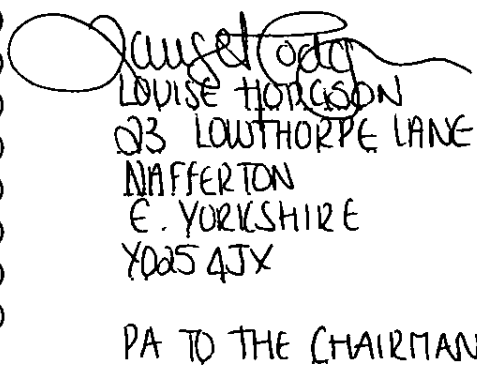 LOUISE HODGSON
23 LOWTHORPE LANE
NAFFERTON
E. YORKSHIRE
YO25 4JX
PA TO THE CHAIRMAN